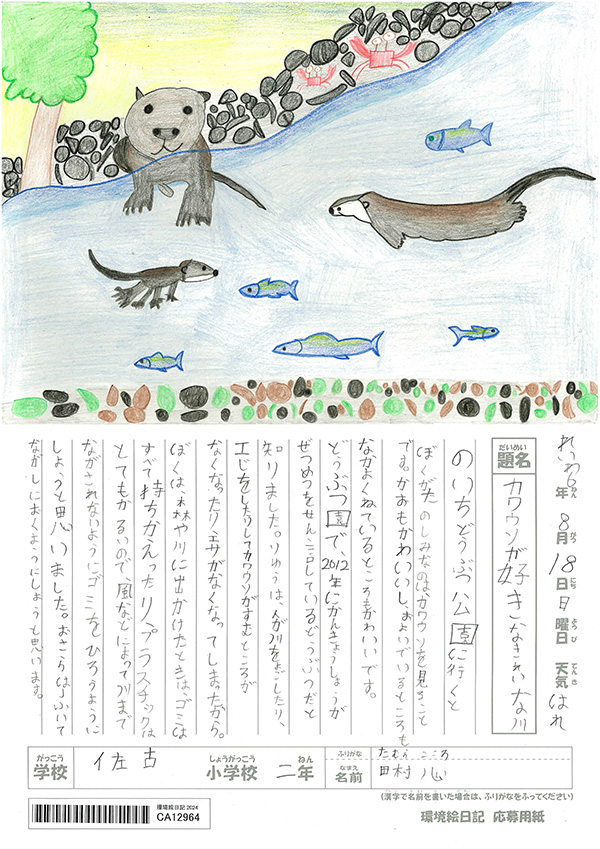 れいわ6年 8月18日 日曜日 天気 はれ
ねん がつ にち ようび てんき
だいめい
題名 カワウソが好きなきれいな川
のいちどうぶつ公園に行くと
ぼくがたのしみなのはカワウソを見ること
です。かおもかわいいし、およいでいるところも
なかよくねているところもかわいいです。
どうぶつ園で、2012年にかんきょうしょうが
ぜつめつをせん言しているどうぶつだと
知りました。りゆうは、人が川をよごしたり、
工じをしたりしてカワウソがすむところが
なくなったりエサがなくなってしまったから。
ぼくは、森や川に出かけたときは、ゴミは
すべて持ちかえったり、プラスチックは
とてもかるいので、風などによって川まで
ながされないようにゴミをひろうように
しようと思いました。おさらはふいて
ながしにおくようにしようと思います。
がっこう しょうがっこう ねん
学校 佐古 小学校 二年
ふりがな たむら こころ
なまえ
名前 田村 心
(漢字で名前を書いた場合は、ふりがなをふってください)
環境絵日記 応募用紙
環境絵日記 2024
CA12964